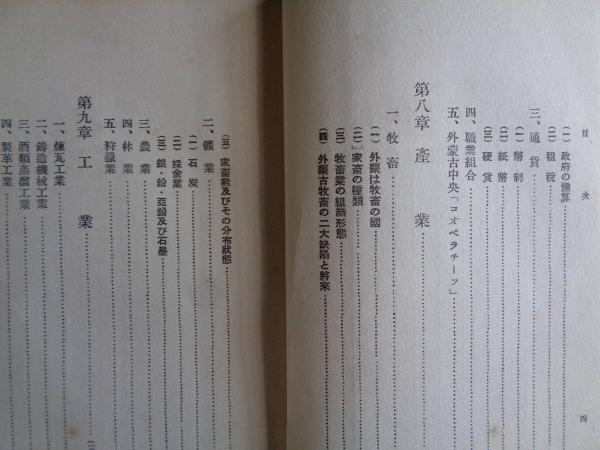 目次
(一) 政府の豫算
(二) 租税
三、通貨
(一) 幣制
(二) 紙幣
(三) 硬貨
四、職業組合
五、外蒙古中央「コオペラチーフ」
第八章 產業
一、牧畜
(一) 外蒙は牧畜の國
(二) 家畜の種類
(三) 牧畜業の組織形態
(四) 外蒙古牧畜の二大缺陷と將來
四
(五) 家畜數及びその分布狀態
二、鑛業
(一) 石炭
(二) 採金業
(三) 銀・鉛・亞鉛及び石墨
三、農業
四、林業
五、狩獵業
第九章 工業
一、煉瓦工業
二、鑄造機械工業
三、酒類蒸溜工業
四、製革工業